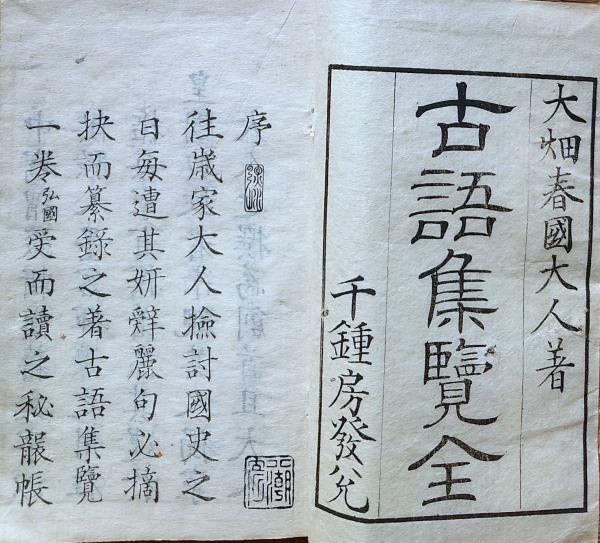 大畑春國大人著
古語集覽全
千鍾房發兌
序
往歳家大人撿討國史之
日每遭其妍辤麗句必摘
抉而纂錄之著古語集覽
一卷弘國受而讀之秘諸帳